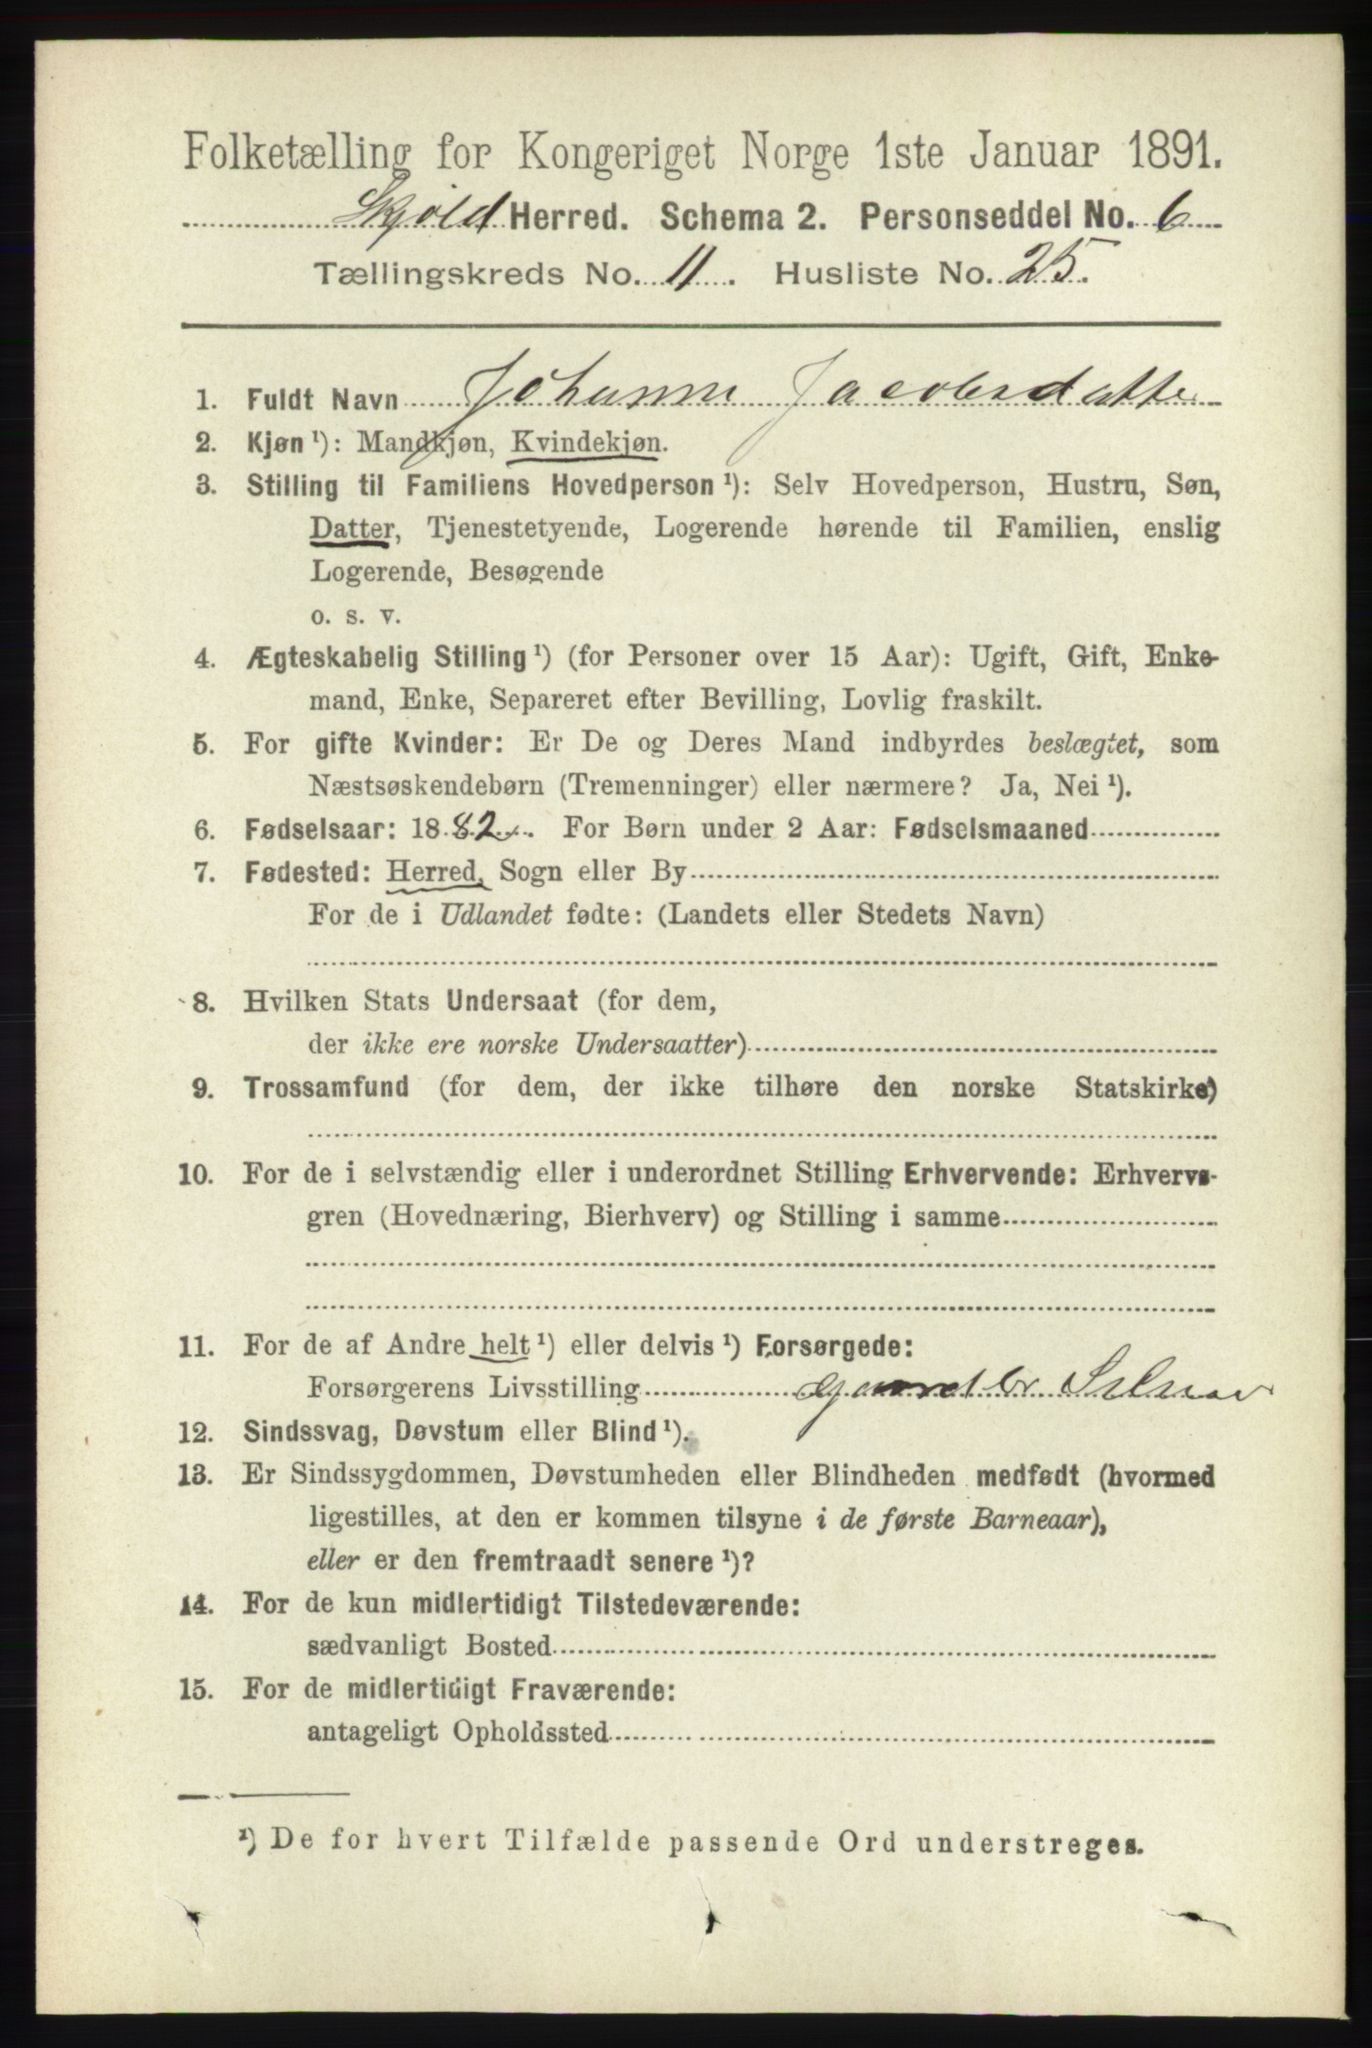 Folketælling for Kongeriget Norge 1ste Januar 1891.
Skjold Herred. Schema 2. Personseddel No. 6
Tællingskreds No. 11. Husliste No. 25.
1. Fuldt Navn Johanne Jacobsdatter
2. Kjøn ¹): Mandkjøn, Kvindekjøn.
3. Stilling til Familiens Hovedperson ¹): Selv Hovedperson, Hustru, Søn,
Datter, Tjenestetyende, Logerende hørende til Familien, enslig
Logerende, Besøgende
o. s. v.
4. Ægteskabelig Stilling ¹) (for Personer over 15 Aar): Ugift, Gift, Enke-
mand, Enke, Separeret efter Bevilling, Lovlig fraskilt.
5. For gifte Kvinder: Er De og Deres Mand indbyrdes beslægtet, som
Næstsøskendebørn (Tremenninger) eller nærmere? Ja, Nei ¹).
6. Fødselsaar: 1882. For Børn under 2 Aar: Fødselsmaaned
7. Fødested: Herred, Sogn eller By
For de i Udlandet fødte: (Landets eller Stedets Navn)
8. Hvilken Stats Undersaat (for dem,
der ikke ere norske Undersaatter)
9. Trossamfund (for dem, der ikke tilhøre den norske Statskirke)
10. For de i selvstændig eller i underordnet Stilling Erhvervende: Erhvervs-
gren (Hovednæring, Bierhverv) og Stilling i samme
11. For de af Andre helt ¹) eller delvis ¹) Forsørgede:
Forsørgerens Livsstilling Gaardbr
12. Sindssvag, Døvstum eller Blind ¹).
13. Er Sindssygdommen, Døvstumheden eller Blindheden medfødt (hvormed
ligestilles, at den er kommen tilsyne i de første Barneaar),
eller er den fremtraadt senere ¹)?
14. For de kun midlertidigt Tilstedeværende:
sædvanligt Bosted
15. For de midlertidigt Fraværende:
antageligt Opholdssted
¹) De for hvert Tilfælde passende Ord understreges.